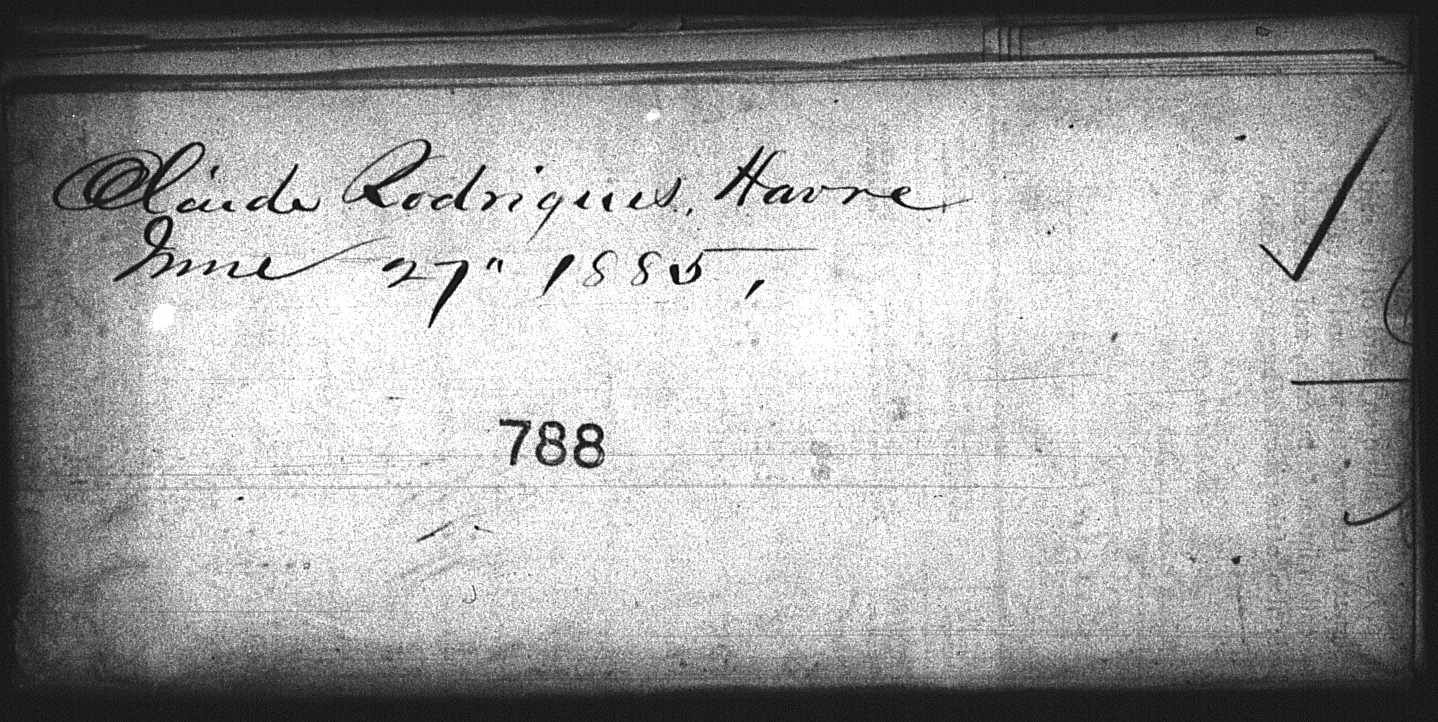 Claude Rodrigues, Havre
June 27" 1885,
788